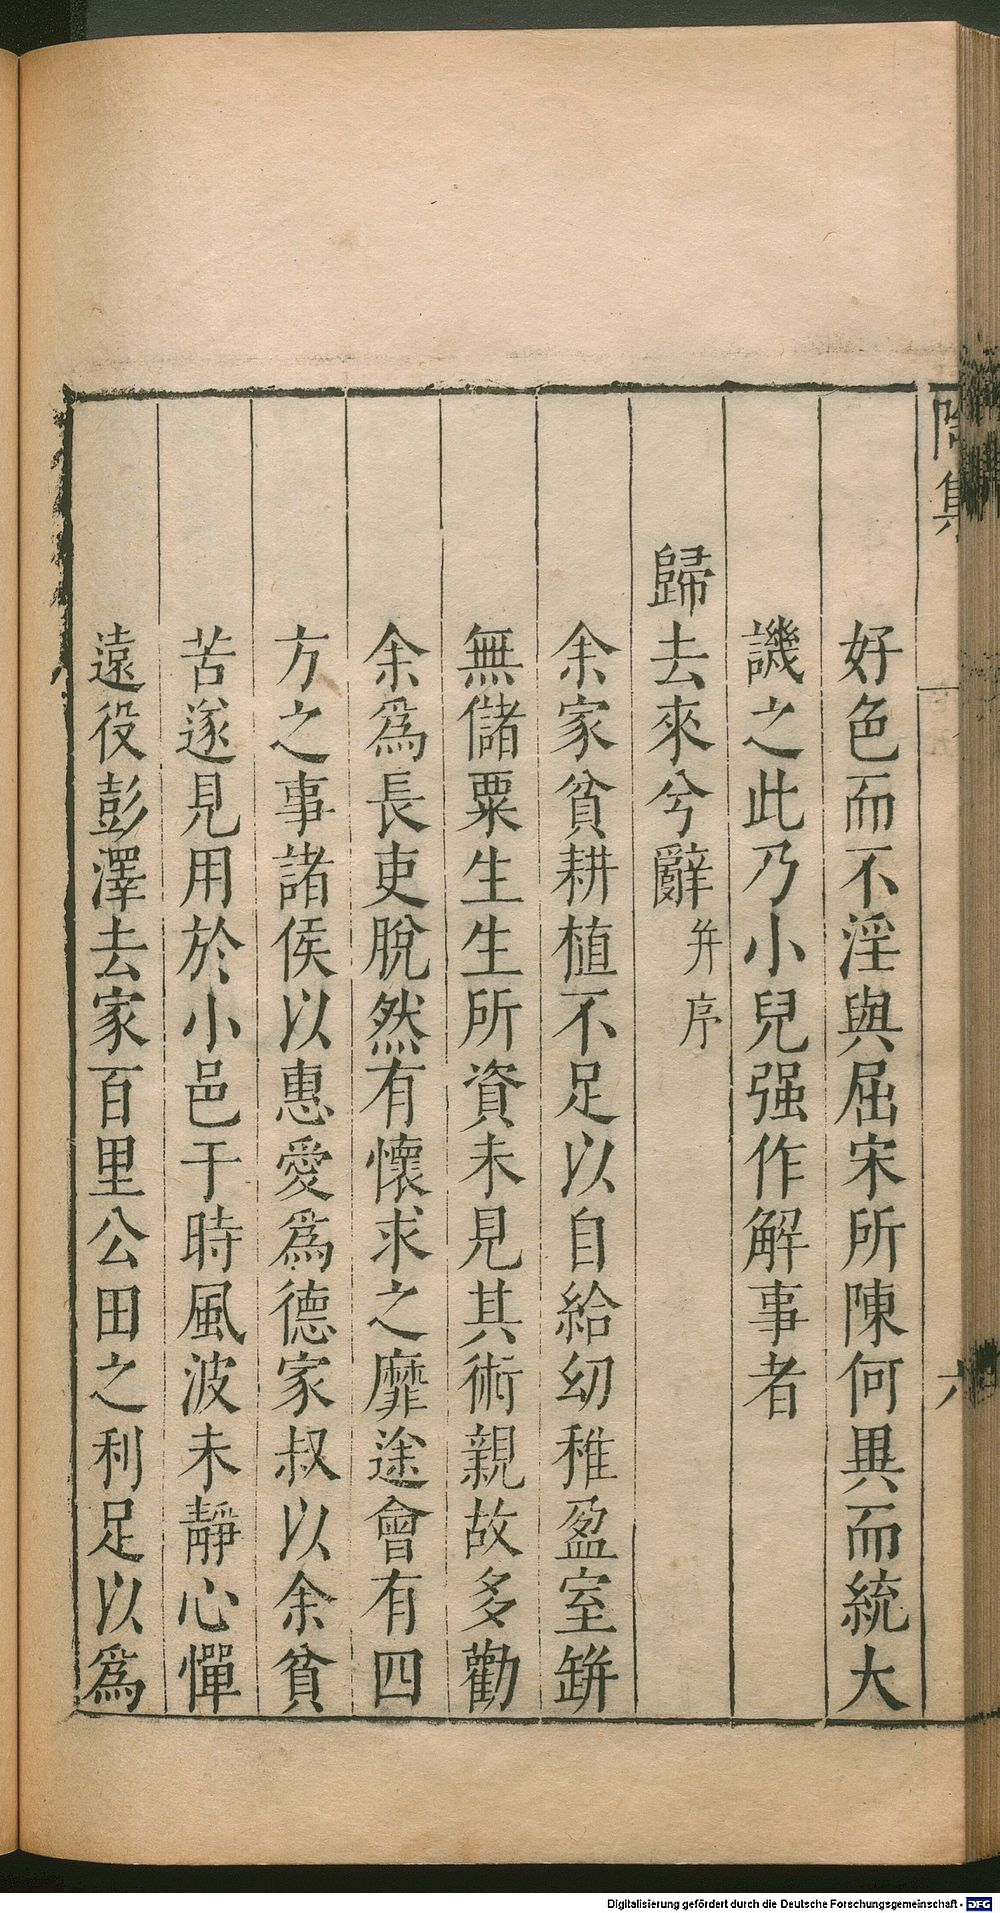 集
六
好色而不淫與屈宋所陳何異而統大
譏之此乃小兒强作解事者
歸去來兮辭并序
余家貧耕植不足以自給幼稚盈室缾
無儲粟生生所資未見其術親故多勸
余爲長吏脫然有懷求之靡途會有四
方之事諸侯以惠愛爲德家叔以余貧
苦遂見用於小邑于時風波未靜心憚
遠役彭澤去家百里公田之利足以爲
Digitalisierung gefördert durch die Deutsche Forschungsgemeinschaft - DFG